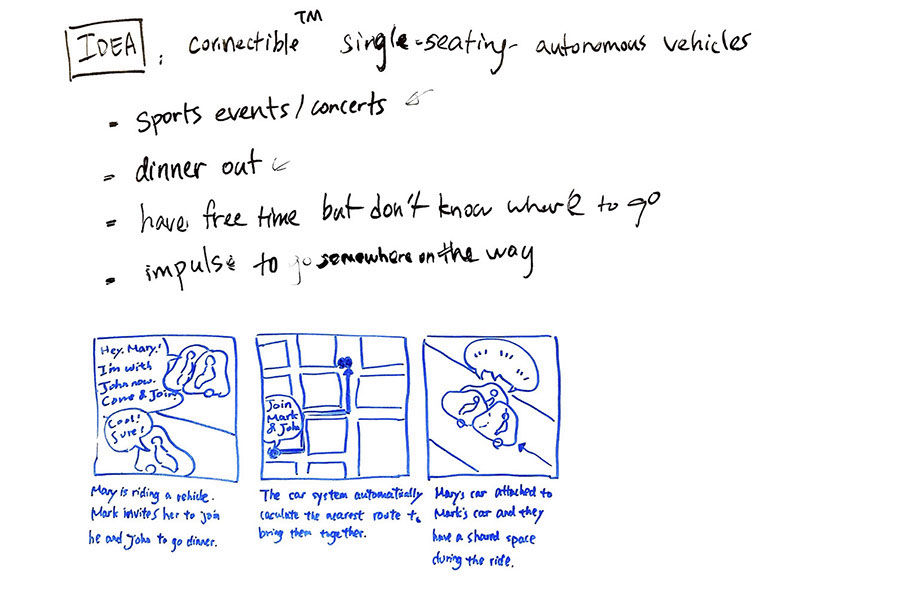 IDEA : connectible™ single-seating autonomous vehicles
- sports events/concerts
- dinner out
- have free time but don't know where to go
- impulse to go somewhere on the way
Hey, Mary!
I'm with
John now.
Come & Join!
Cool!
Sure!
Join
Mark
& John
Mary is riding a vehicle.
Mark invites her to join
he and John to go dinner.
The car system automatically
caculate the nearest route to
bring them together.
Mary's car attached to
Mark's car and they
have a shared space
during the ride.